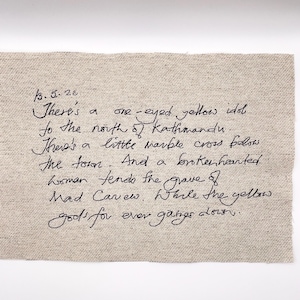 There's a one-eyed yellow idol
to the north of Kathmandu
There's a little marble cross below
the town. And a brokenhearted
woman tends the grave of
Mad Carew. While the yellow
gods for ever gazes down.